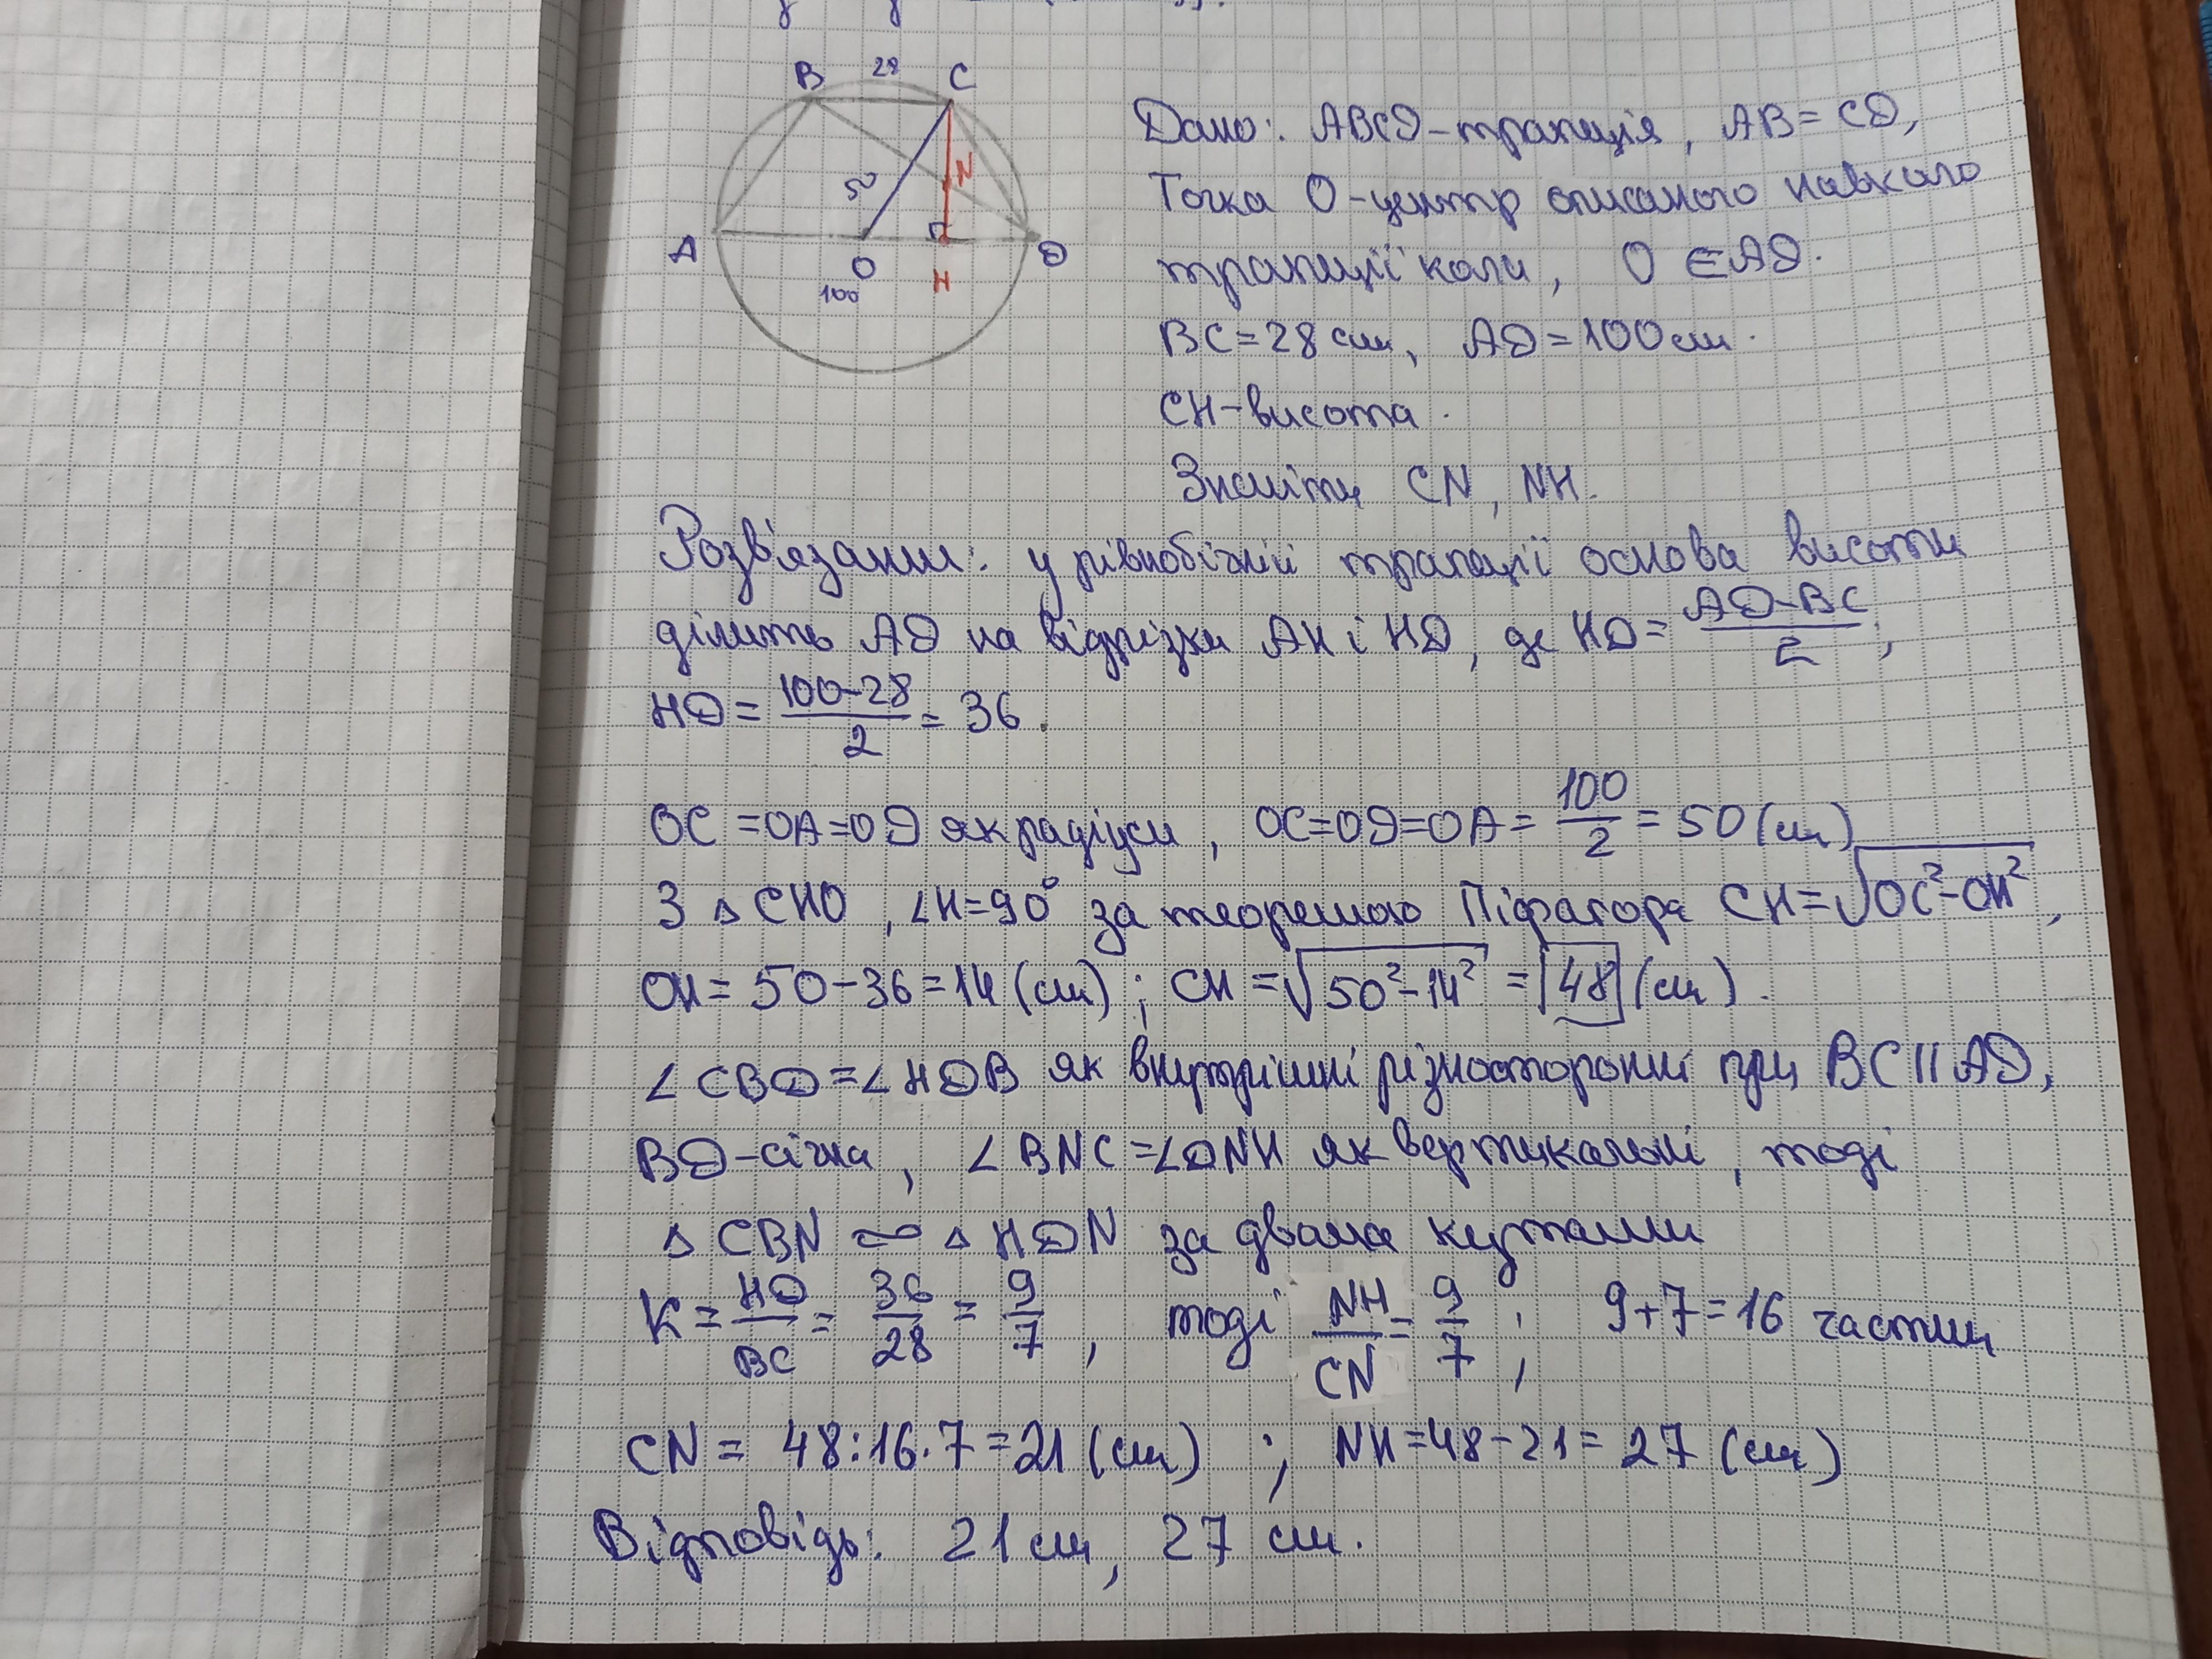 B 28 C
50
N
A O H D
100
Дано: ABCD-трапеція, AB=CD,
Точка O-центр описаного навколо
трапеції кола, O ∈ AD.
BC=28 см, AD=100 см.
CH-висота.
Знайти CN, NH.
Розв'язання: у рівнобічній трапеції основа висоти
ділить AD на відрізки AH і HD, де HD = (AD-BC)/2;
HD = (100-28)/2 = 36.
OC=OA=OD як радіуси, OC=OD=OA= 100/2 = 50 (см)
З △ CHO, ∠H=90° за теоремою Піфагора CH=√(OC²-OH²),
OH = 50-36=14 (см); CH = √(50²-14²) = 48 (см).
∠CBD=∠HDB як внутрішні різносторонні при BC||AD,
BD-січна, ∠BNC=∠DNH як вертикальні, тоді
△ CBN ∞ △ HDN за двома кутами
K = HD/BC = 36/28 = 9/7, тоді NH/CN = 9/7; 9+7=16 частин
CN = 48:16·7=21 (см); NH=48-21=27 (см)
Відповідь: 21 см, 27 см.